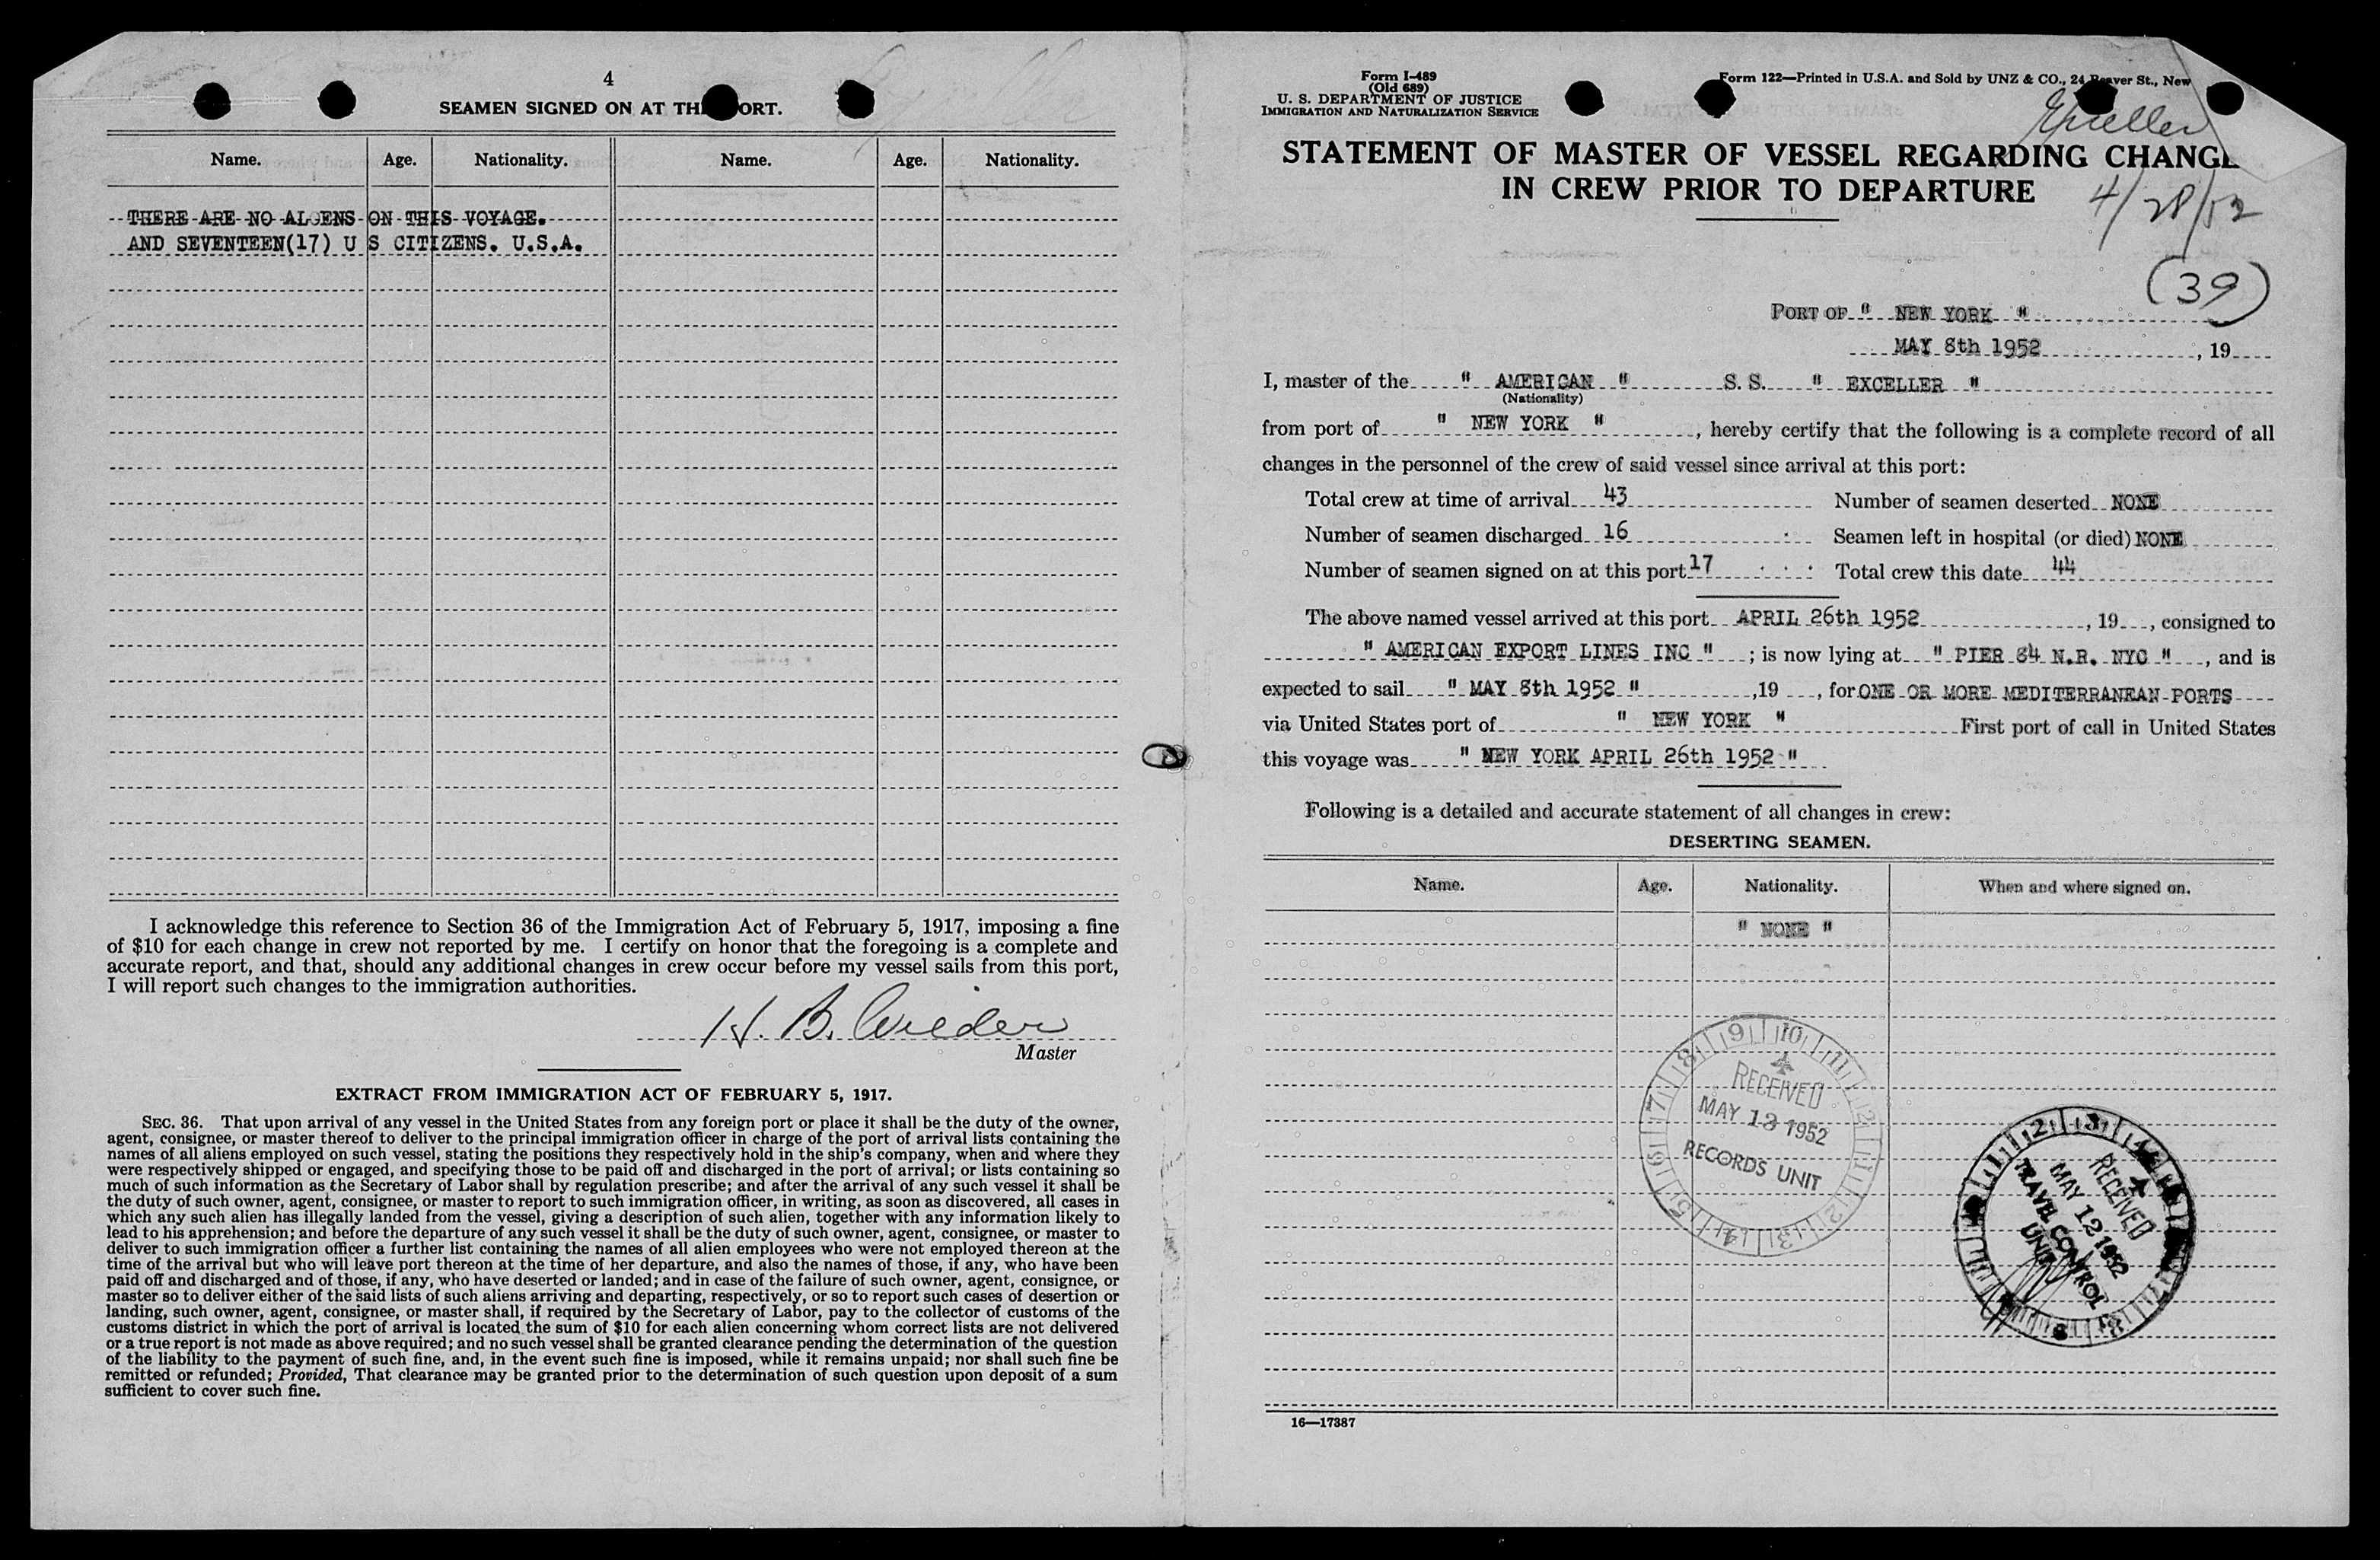 4
SEAMEN SIGNED ON AT TH ORT.
Name. Age. Nationality. Name. Age. Nationality.
THERE ARE NO ALOENS ON THIS VOYAGE.
AND SEVENTEEN(17) U S CITIZENS. U.S.A.
I acknowledge this reference to Section 36 of the Immigration Act of February 5, 1917, imposing a fine
of $10 for each change in crew not reported by me. I certify on honor that the foregoing is a complete and
accurate report, and that, should any additional changes in crew occur before my vessel sails from this port,
I will report such changes to the immigration authorities.
H. B. Wieder
Master
EXTRACT FROM IMMIGRATION ACT OF FEBRUARY 5, 1917.
SEC. 36. That upon arrival of any vessel in the United States from any foreign port or place it shall be the duty of the owner,
agent, consignee, or master thereof to deliver to the principal immigration officer in charge of the port of arrival lists containing the
names of all aliens employed on such vessel, stating the positions they respectively hold in the ship's company, when and where they
were respectively shipped or engaged, and specifying those to be paid off and discharged in the port of arrival; or lists containing so
much of such information as the Secretary of Labor shall by regulation prescribe; and after the arrival of any such vessel it shall be
the duty of such owner, agent, consignee, or master to report to such immigration officer, in writing, as soon as discovered, all cases in
which any such alien has illegally landed from the vessel, giving a description of such alien, together with any information likely to
lead to his apprehension; and before the departure of any such vessel it shall be the duty of such owner, agent, consignee, or master to
deliver to such immigration officer a further list containing the names of all alien employees who were not employed thereon at the
time of the arrival but who will leave port thereon at the time of her departure, and also the names of those, if any, who have been
paid off and discharged and of those, if any, who have deserted or landed; and in case of the failure of such owner, agent, consignee, or
master so to deliver either of the said lists of such aliens arriving and departing, respectively, or so to report such cases of desertion or
landing, such owner, agent, consignee, or master shall, if required by the Secretary of Labor, pay to the collector of customs of the
customs district in which the port of arrival is located the sum of $10 for each alien concerning whom correct lists are not delivered
or a true report is not made as above required; and no such vessel shall be granted clearance pending the determination of the question
of the liability to the payment of such fine, and, in the event such fine is imposed, while it remains unpaid; nor shall such fine be
remitted or refunded; Provided, That clearance may be granted prior to the determination of such question upon deposit of a sum
sufficient to cover such fine.
Form I-489
(Old 689)
U. S. DEPARTMENT OF JUSTICE
IMMIGRATION AND NATURALIZATION SERVICE
Form 122—Printed in U.S.A. and Sold by UNZ & CO., 24 Beaver St., New
Exceller
STATEMENT OF MASTER OF VESSEL REGARDING CHANGE
IN CREW PRIOR TO DEPARTURE
4/28/52
(39)
PORT OF " NEW YORK "
MAY 8th 1952 , 19
I, master of the " AMERICAN " S. S. " EXCELLER "
(Nationality)
from port of " NEW YORK " , hereby certify that the following is a complete record of all
changes in the personnel of the crew of said vessel since arrival at this port:
Total crew at time of arrival 43 Number of seamen deserted NONE
Number of seamen discharged 16 Seamen left in hospital (or died) NONE
Number of seamen signed on at this port 17 Total crew this date 44
The above named vessel arrived at this port APRIL 26th 1952 , 19 , consigned to
" AMERICAN EXPORT LINES INC " ; is now lying at " PIER 84 N.R. NYC " , and is
expected to sail " MAY 8th 1952 " ,19 , for ONE OR MORE MEDITERRANEAN PORTS
via United States port of " NEW YORK " First port of call in United States
this voyage was " NEW YORK APRIL 26th 1952 "
Following is a detailed and accurate statement of all changes in crew:
DESERTING SEAMEN.
Name. Age. Nationality. When and where signed on.
" NONE "
RECEIVED
MAY 13 1952
RECORDS UNIT
RECEIVED
MAY 12 1952
TRAVEL CONTROL
UNIT
16—17387